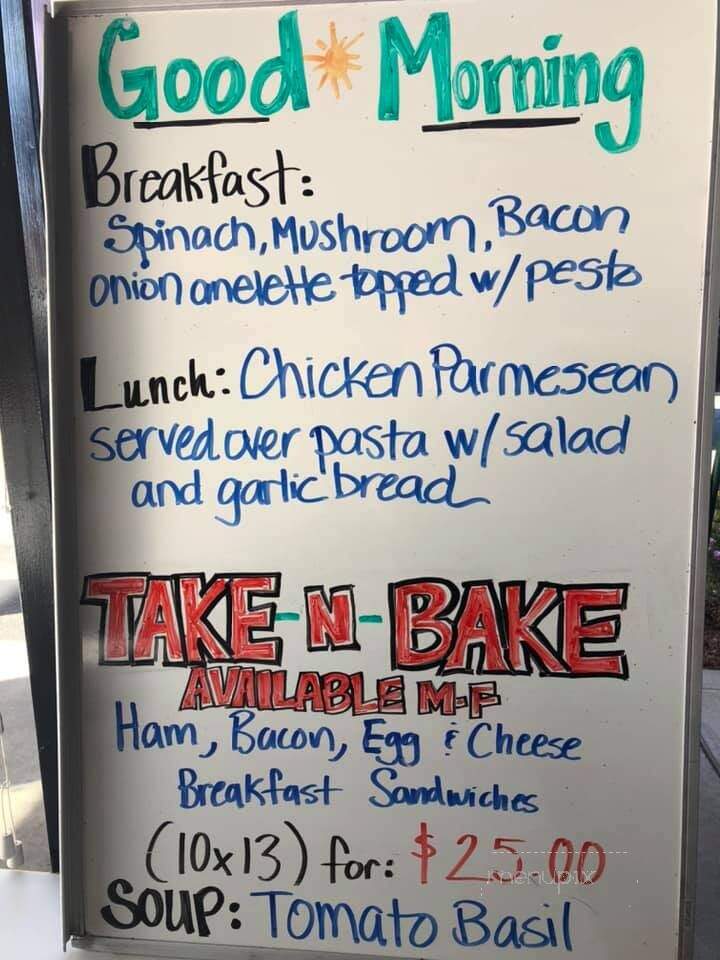 Good Morning
Breakfast:
Spinach, Mushroom, Bacon
onion omelette topped w/ pesto
Lunch: Chicken Parmesean
served over pasta w/ salad
and garlic bread
TAKE-N-BAKE
AVAILABLE M-F
Ham, Bacon, Egg & Cheese
Breakfast Sandwiches
(10x13) for: $25.00
menupix
Soup: Tomato Basil